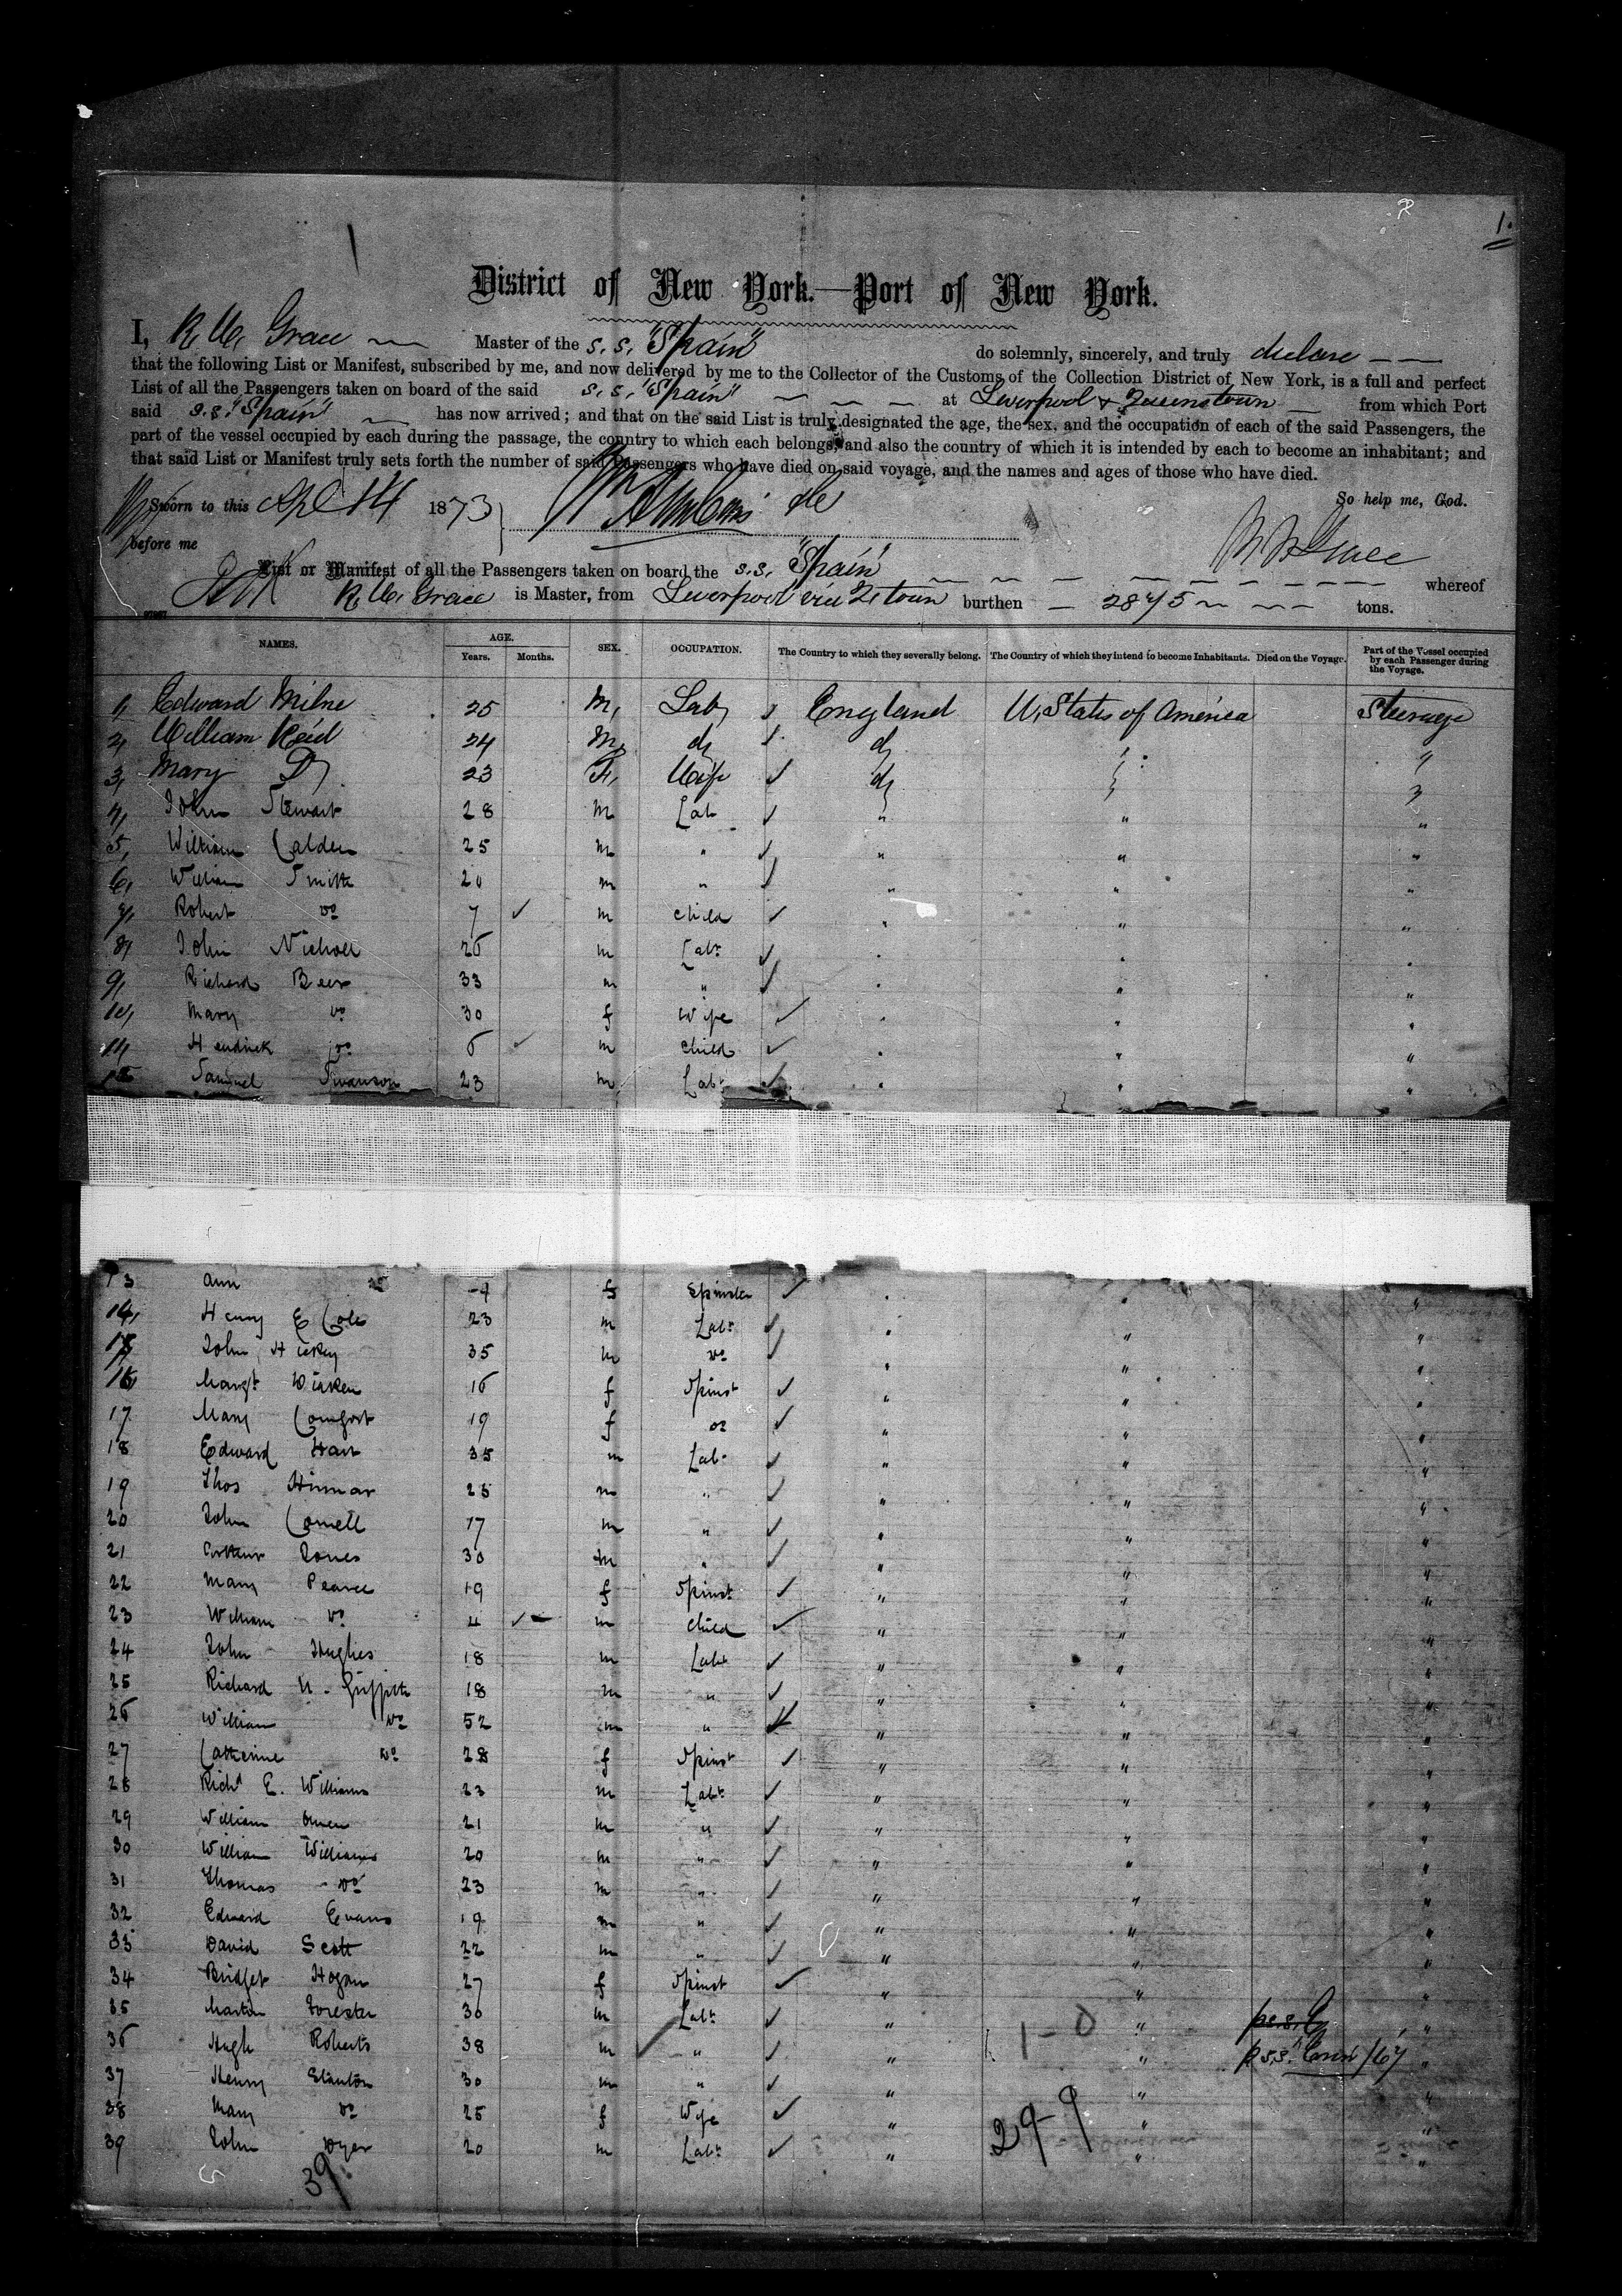 1.
District of New York.—Port of New York.
I, R. W. Grace Master of the s.s. "Spain" do solemnly, sincerely, and truly declare
that the following List or Manifest, subscribed by me, and now delivered by me to the Collector of the Customs of the Collection District of New York, is a full and perfect
List of all the Passengers taken on board of the said s.s. "Spain" at Liverpool & Queenstown from which Port
said s.s. "Spain" has now arrived; and that on the said List is truly designated the age, the sex, and the occupation of each of the said Passengers, the
part of the vessel occupied by each during the passage, the country to which each belongs, and also the country of which it is intended by each to become an inhabitant; and
that said List or Manifest truly sets forth the number of said Passengers who have died on said voyage, and the names and ages of those who have died.
So help me, God.
Sworn to this Apl 14 1873
before me
R W Grace
List or Manifest of all the Passengers taken on board the s.s. "Spain" whereof
R. W. Grace is Master, from Liverpool via Qtown burthen 2875 tons.
NAMES. AGE. Years. Months. SEX. OCCUPATION. The Country to which they severally belong. The Country of which they intend to become Inhabitants. Died on the Voyage. Part of the Vessel occupied by each Passenger during the Voyage.
1, Edward Milne 25 M, Lab England U. States of America Steerage
2, William Reid 24 M, do do " "
3, Mary Do 23 F, Wife do " "
4, John Stewart 28 m Lab " " "
5, William Calder 25 m " " " "
6, William Smith 20 m " " " "
7, Robert Do 7 m child " " "
8, John Nicholl 26 m Labr " " "
9, Richard Beer 33 m " " " "
10, Mary Do 30 f Wife " " "
11, Hendrick Do 6 m child " " "
12 Samuel Swanson 23 m Labr " " "
13 Ann Do f Spinster " " "
14, Henry E Cole 23 m Labr " " "
15 John Hickey 35 m Do " " "
16 Margt 16 f Spinst " " "
17 Mary Comfort 19 f Do " " "
18 Edward Hart 35 m Labr " " "
19 Thos 25 m " " " "
20 John Cornell 17 m " " " "
21 Arthur Jones 30 m " " " "
22 Mary Pearce 19 f Spinst " " "
23 William Do 4 m child " " "
24 John Hughes 18 m Labr " " "
25 Richard Griffith 18 m " " " "
26 William Do 52 m " " " "
27 Catherine Do 28 f Spinst " " "
28 Richd E. Williams 23 m Labr " " "
29 William Owen 21 m " " " "
30 William Williams 20 m " " " "
31 Thomas Do 23 m " " " "
32 Edward Evans 19 m " " " "
33 David Scott 22 m " " " "
34 Bridget Hogan 27 f Spinst " " "
35 Martin Forester 30 m Labr " " "
36 Hugh Roberts 38 m " " " "
37 Henry Stanton 30 m " " " "
38 Mary Do 25 f Wife " " "
39 John Dyer 20 m Labr " " "
1-0
29-9
39